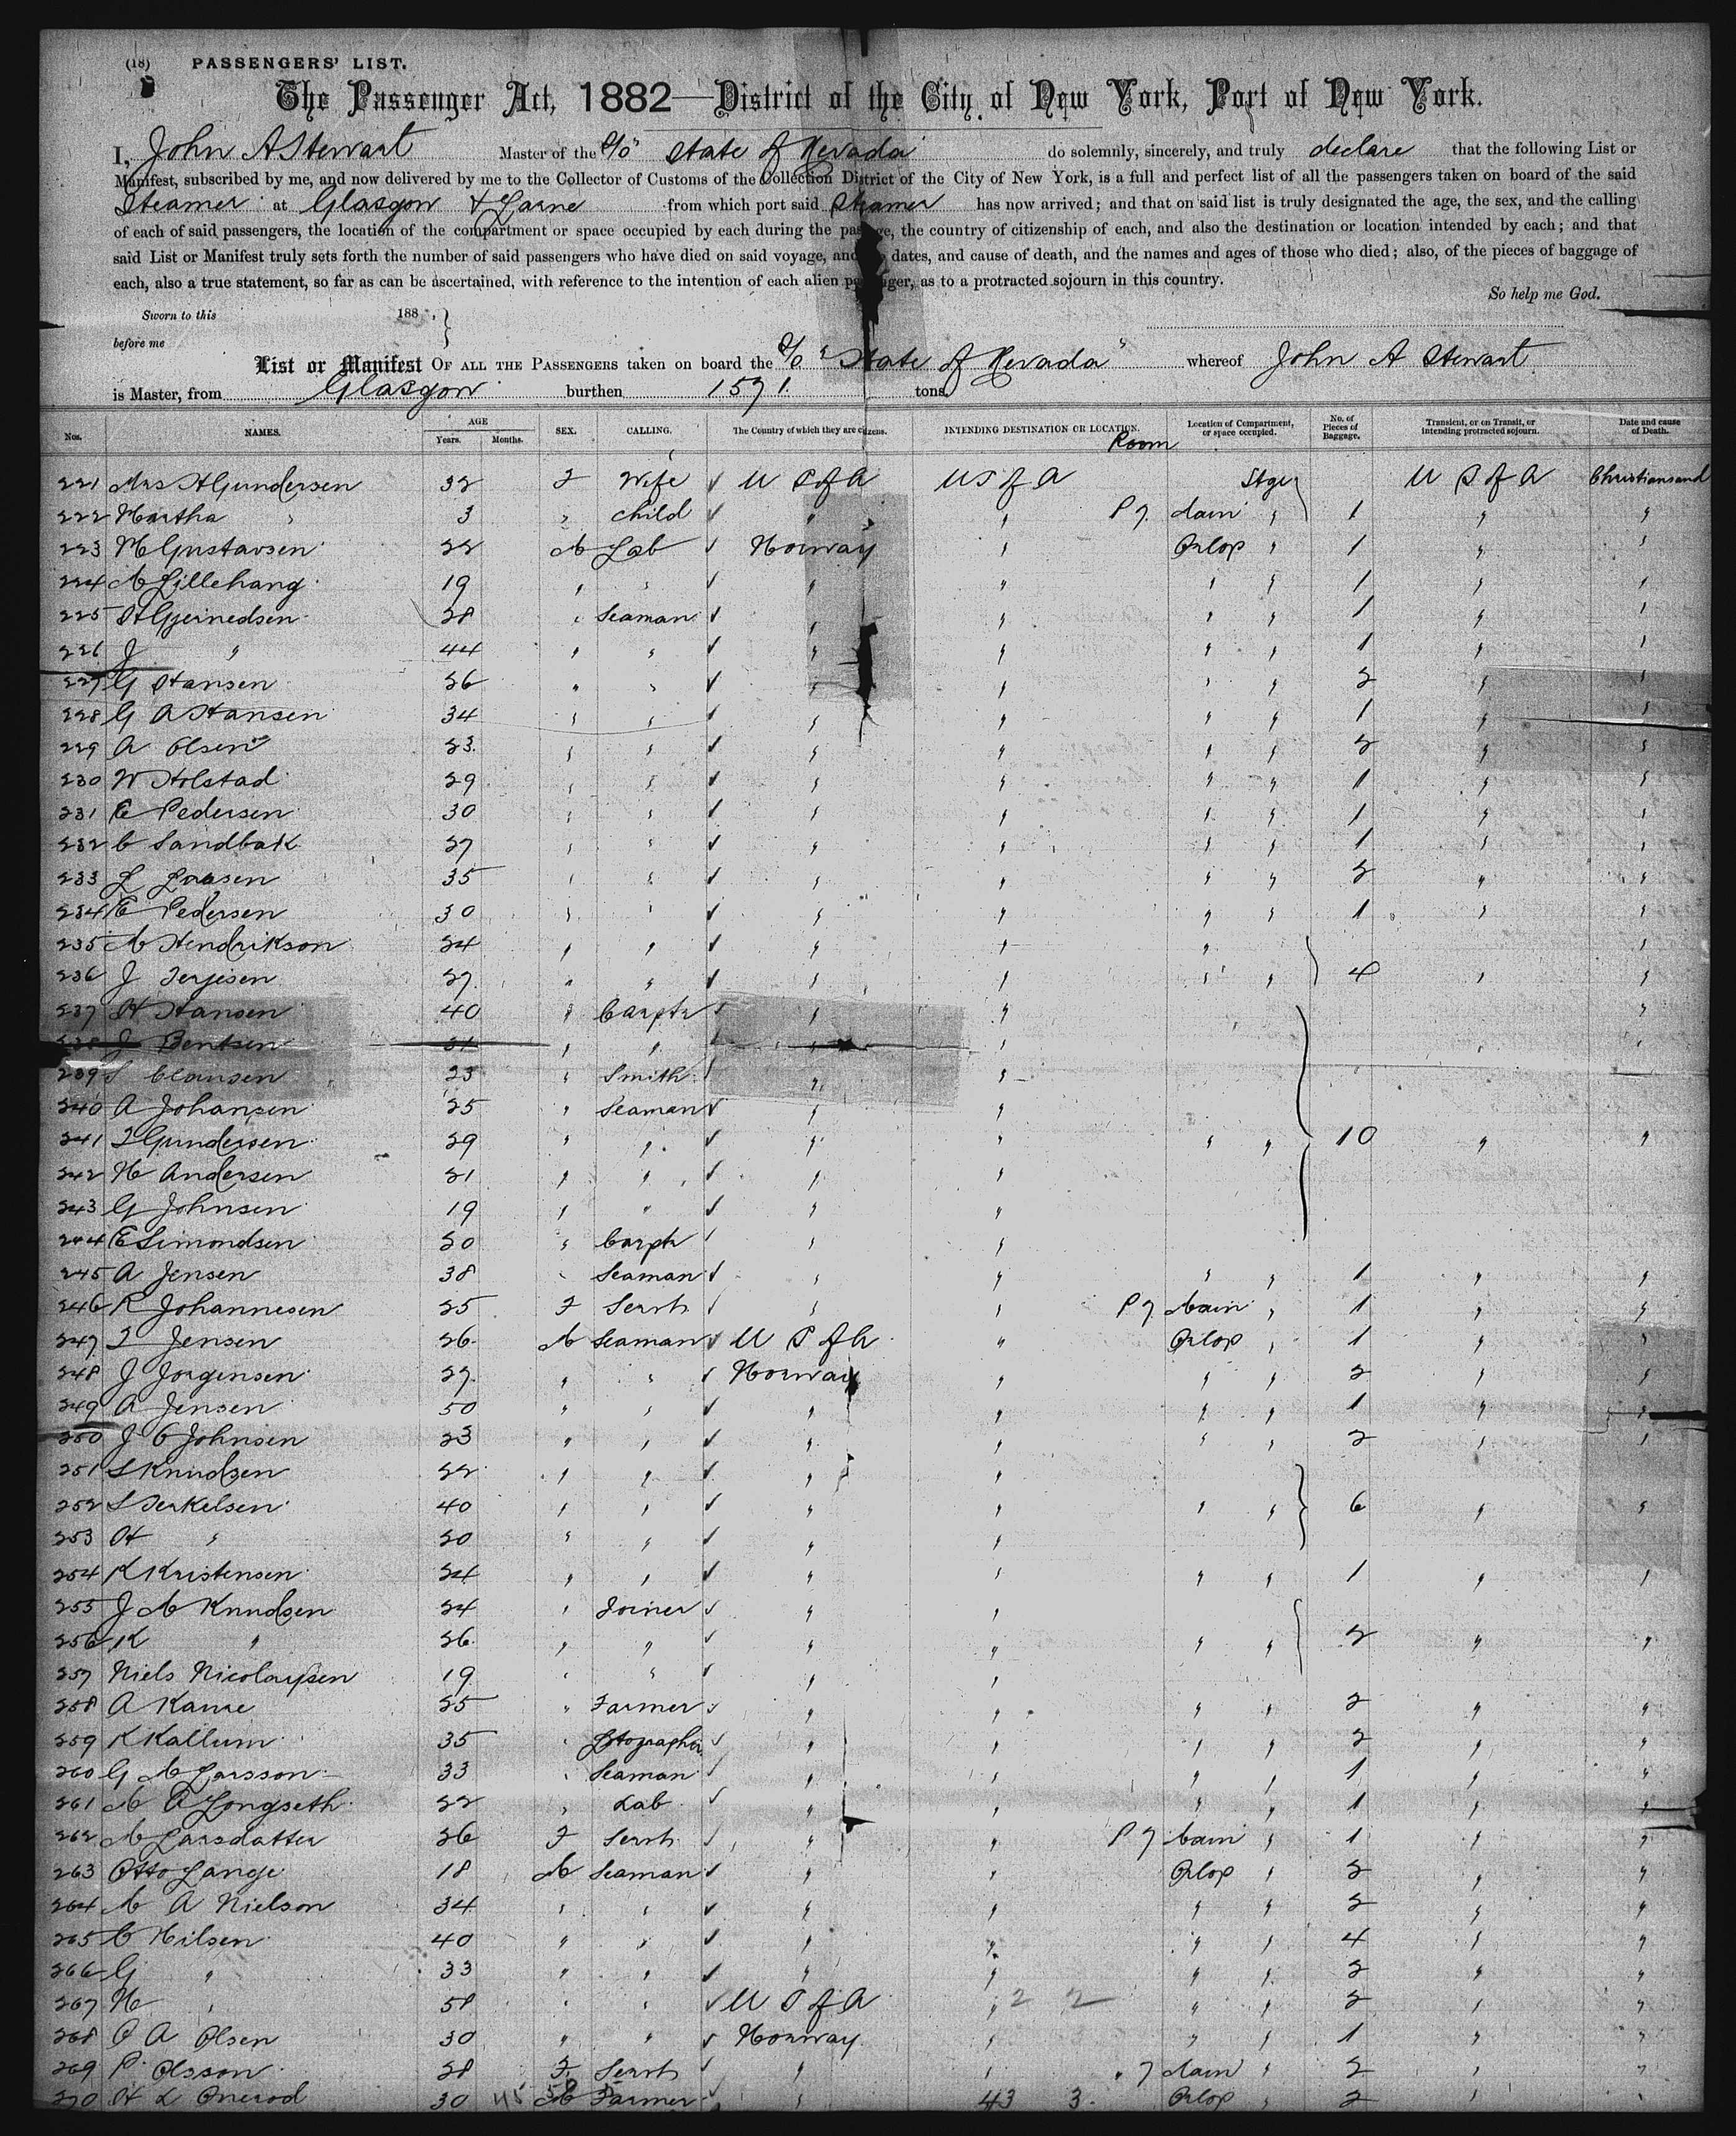 (18) PASSENGERS' LIST.
The Passenger Act, 1882—District of the City of New York, Port of New York.
I, John A Stewart Master of the S/S "State of Nevada" do solemnly, sincerely, and truly declare that the following List or
Manifest, subscribed by me, and now delivered by me to the Collector of Customs of the Collection District of the City of New York, is a full and perfect list of all the passengers taken on board of the said
Steamer at Glasgow & Larne from which port said Steamer has now arrived; and that on said list is truly designated the age, the sex, and the calling
of each of said passengers, the location of the compartment or space occupied by each during the passage, the country of citizenship of each, and also the destination or location intended by each; and that
said List or Manifest truly sets forth the number of said passengers who have died on said voyage, and dates, and cause of death, and the names and ages of those who died; also, of the pieces of baggage of
each, also a true statement, so far as can be ascertained, with reference to the intention of each alien passenger, as to a protracted sojourn in this country.
So help me God.
Sworn to this 188 ,
before me
List or Manifest OF ALL THE PASSENGERS taken on board the S/S "State of Nevada" whereof John A Stewart
is Master, from Glasgow burthen 1571. tons.
Nos. NAMES. AGE Years. Months. SEX. CALLING. The Country of which they are citizens. INTENDING DESTINATION OR LOCATION. Room Location of Compartment, or space occupied. No. of Pieces of Baggage. Transient, or on Transit, or intending protracted sojourn. Date and cause of Death.
221 Mrs H Gundersen 32 F Wife U S of A U S of A Stge U S of A Christiansand
222 Martha " 3 " Child " " P 7. Main " 1 " "
223 N Gustavsen 22 M Lab Norway " Orlop " 1 " "
224 M Lillehang 19 " " " " " " 1 " "
225 H Gjernedsen 28 " Seaman " " " " 1 " "
226 J " 44 " " " " " " 1 " "
227 G Hansen 26 " " " " " " 2 " "
228 G A Hansen 34 " " " " " " 1 " "
229 A Olsen 23. " " " " " " 2 " "
230 W Holstad 29 " " " " " " 1 " "
231 E Pedersen 30 " " " " " " 1 " "
232 C Sandbak 27 " " " " " " 1 " "
233 L Larsen 35 " " " " " " 2 " "
234 E Pedersen 30 " " " " " " 1 " "
235 M Hendrikson 24 " " " " " "
236 J Terjesen 27. " " " " " " 4 " "
237 H Hansen 40 " Carptr " " "
238 J Bentsen 31 " " " " " "
239 S Clausen 23 " Smith " "
240 A Johansen 25 " Seaman " "
241 T Gundersen 29 " " " " " " 10 " "
242 N Andersen 21 " " " "
243 G Johnsen 19 " " " "
244 E Simondsen 20 " Carptr " "
245 A Jensen 38 " Seaman " " " " 1 " "
246 R Johannesen 25 F Servt " " P 7 Main " 1 " "
247 T Jensen 26. M Seaman U S of A " Orlop " 1 " "
248 J Jorgensen 27. " " Norway " " " 2 " "
249 A Jensen 50 " " " " " " 1 " "
250 J C Johnsen 23 " " " " " " 2 " "
251 S Knudsen 22 " " " "
252 S Terkelsen 40 " " " " " " 6 " "
253 H " 20 " " " "
254 K Kristensen 24 " " " " " " 1 " "
255 J M Knudsen 24 " Joiner " "
256 K " 26. " " " " " " 2 " "
257 Niels Nicolaysen 19 " " " "
258 A Kanre 25 " Farmer " " " " 2 " "
259 K Kallum 35 " " " " " 2 " "
260 G M Larsson 33 " Seaman " " " " 1 " "
261 M A Longseth 22 " Lab " " " " 1 " "
262 M Larsdatter 26 F Servt " " P 7 Main " 1 " "
263 Otto Lange 18 M Seaman " " Orlop " 2 " "
264 M A Nielson 34 " " " " " " 2 " "
265 C Nilsen 40 " " " " " " 4 " "
266 G " 33 " " " " " " 2 " "
267 N " 58 " " U S of A " 2 2 " " 2 " "
268 O A Olsen 30 " " Norway " " " 1 " "
269 P Olsson 28 F Servt " " " 7 Main " 2 " "
270 H L Onerod 30 45 M Farmer " 43 3. Orlop " 2 " "